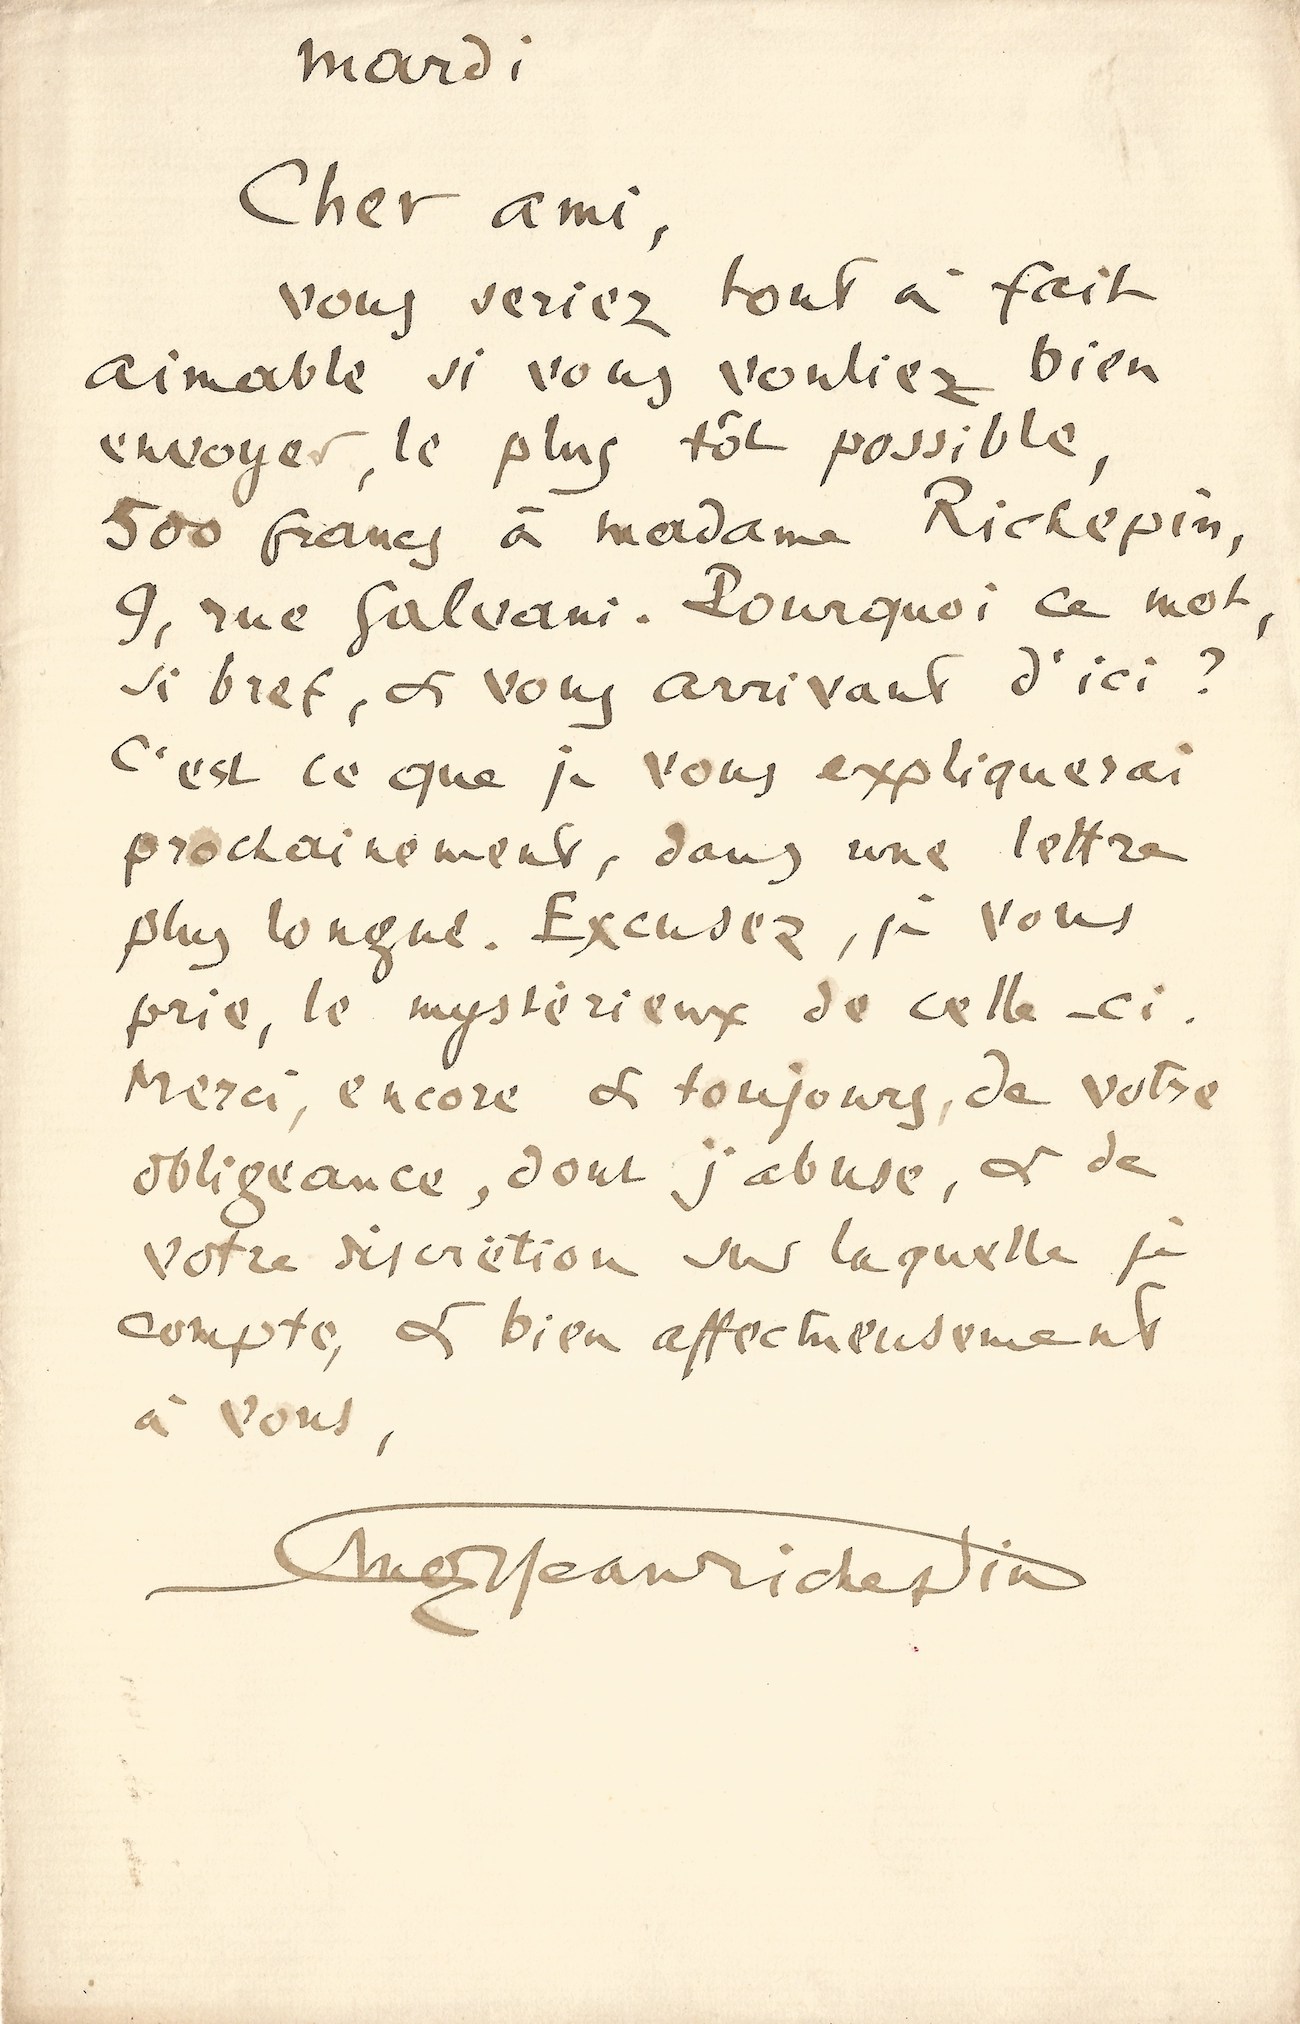 mardi
Cher ami,
vous seriez tout à fait
aimable si vous vouliez bien
envoyer, le plus tôt possible,
500 francs à madame Richepin,
9, rue Galvani. Pourquoi ce mot,
si bref, & vous arrivant d'ici ?
C'est ce que je vous expliquerai
prochainement, dans une lettre
plus longue. Excusez, je vous
prie, le mystérieux de celle-ci.
Merci, encore & toujours, de votre
obligeance, dont j'abuse, & de
votre discrétion sur laquelle je
compte, & bien affectueusement
à vous,
Jean Richepin